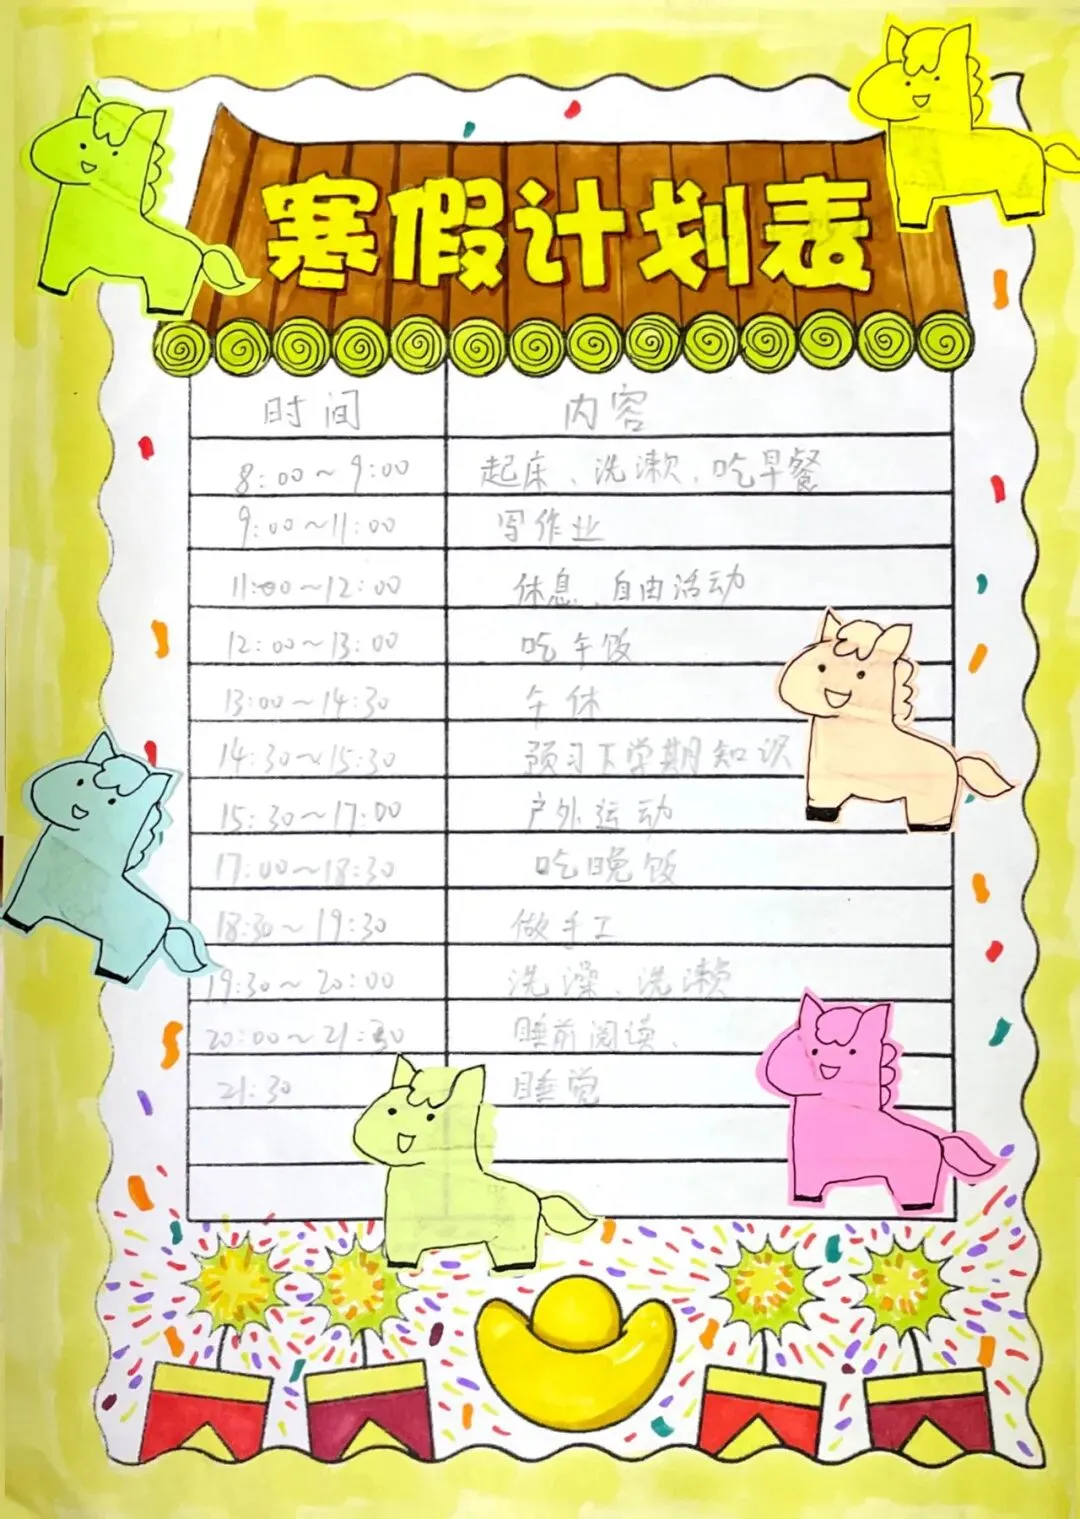 寒假计划表
时间 内容
8:00～9:00 起床、洗漱、吃早餐
9:00～11:00 写作业
11:00～12:00 休息、自由活动
12:00～13:00 吃午饭
13:00～14:30 午休
14:30～15:30 预习下学期知识
15:30～17:00 户外运动
17:00～18:30 吃晚饭
18:30～19:30 做手工
19:30～20:00 洗澡、洗漱
20:00～21:30 睡前阅读、
21:30 睡觉